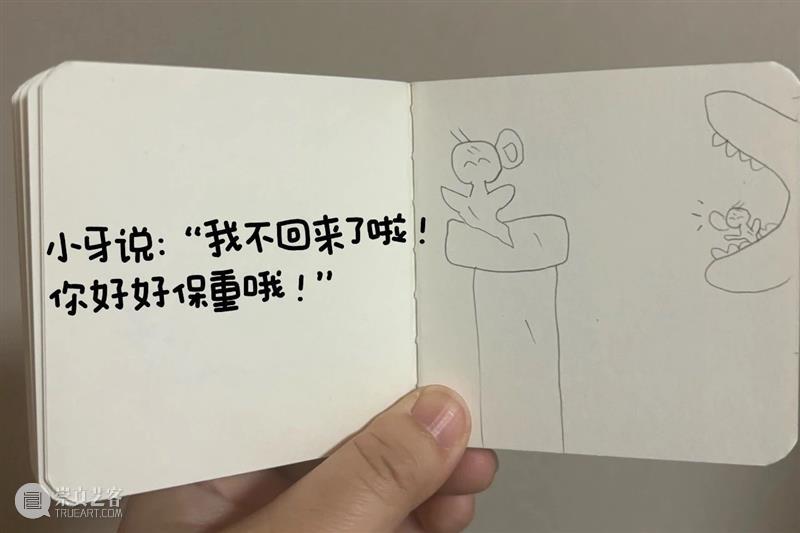 小牙说：“我不回来了啦！
你好好保重哦！”
崇真艺客
TRUEART.COM